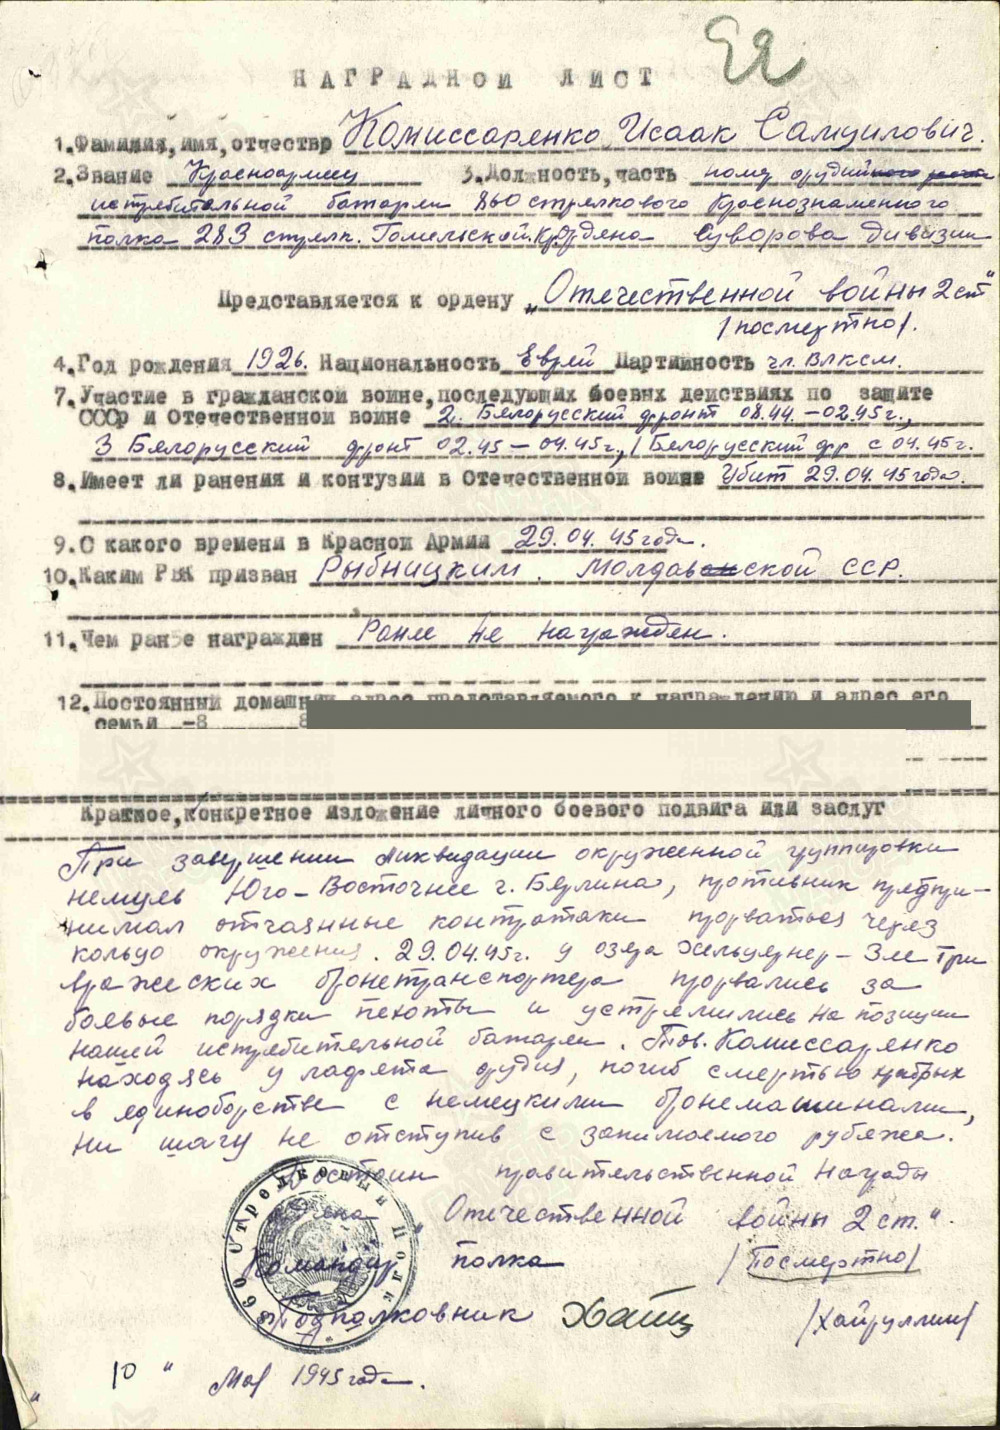 НАГРАДНОЙ ЛИСТ
1. Фамилия, имя, отчество Комиссаренко Исаак Самуилович.
2. Звание Красноармеец 3. Должность, часть номер орудия
истребительной батареи 860 стрелкового Краснознаменного
полка 283 стрелк. Гомельской, Кр. Ордена Суворова дивизии
Представляется к ордену „Отечественной войны 2 ст"
/посмертно/.
4. Год рождения 1926. Национальность Еврей Партийность чл. ВЛКСМ.
7. Участие в гражданской войне, последующих боевых действиях по защите
СССР и Отечественной войне 2. Белорусский фронт 08.44.-02.45г.,
3 Белорусский фронт 02.45-04.45г., 1 Белорусский фр с 04.45г.
8. Имеет ли ранения и контузии в Отечественной войне Убит 29.04.45 года.
9. С какого времени в Красной Армии 29.04.45 года.
10. Каким РВК призван Рыбницким. Молдавской ССР.
11. Чем ранее награжден Ранее не награжден.
12. Постоянный домашний адрес представляемого к награждению и адрес его
семьи -8 8
Краткое, конкретное изложение личного боевого подвига или заслуг
При завершении ликвидации окруженной группировки
немцев Юго-Восточнее г. Берлина, противник предпри-
нимал отчаянные контратаки прорваться через
кольцо окружения. 29.04.45г. у озера - Зее три
вражеских бронетранспортера прорвались за
боевые порядки пехоты и устремились на позиции
нашей истребительной батареи. Тов. Комиссаренко
находясь у лафета орудия, погиб смертью храбрых
в единоборстве с немецкими бронемашинами,
ни шагу не отступив с занимаемого рубежа.
Достоин правительственной награды
ордена „Отечественной войны 2 ст."
Командир полка /Посмертно/
Подполковник /Хайруллин/
860 Стрелковый Полк
10 " Мая 1945 года.